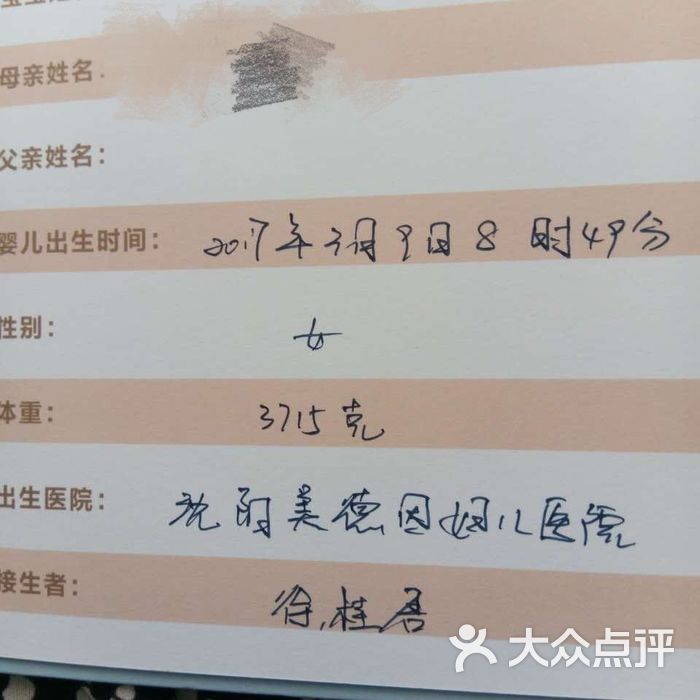 宝宝姓名
母亲姓名:
父亲姓名:
婴儿出生时间: 2017年3月9日8时49分
性别: 女
体重: 3715克
出生医院: 沈阳美德因妇儿医院
接生者: 徐桂
大众点评